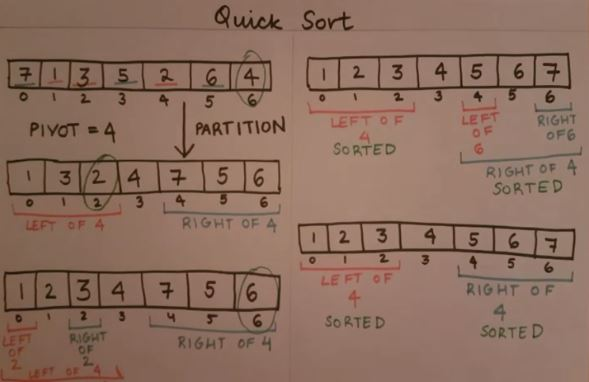 Quick Sort
7 1 3 5 2 6 4
0 1 2 3 4 5 6
PIVOT = 4
PARTITION
1 3 2 4 7 5 6
0 1 2 3 4 5 6
LEFT OF 4
RIGHT OF 4
1 2 3 4 7 5 6
0 1 2 3 4 5 6
LEFT
OF
2
RIGHT
OF
2
LEFT OF 4
RIGHT OF 4
1 2 3 4 5 6 7
0 1 2 3 4 5 6
LEFT OF
4
SORTED
LEFT
OF
6
RIGHT
OF 6
RIGHT OF 4
SORTED
1 2 3 4 5 6 7
0 1 2 3 4 5 6
LEFT OF
4
SORTED
RIGHT OF
4
SORTED